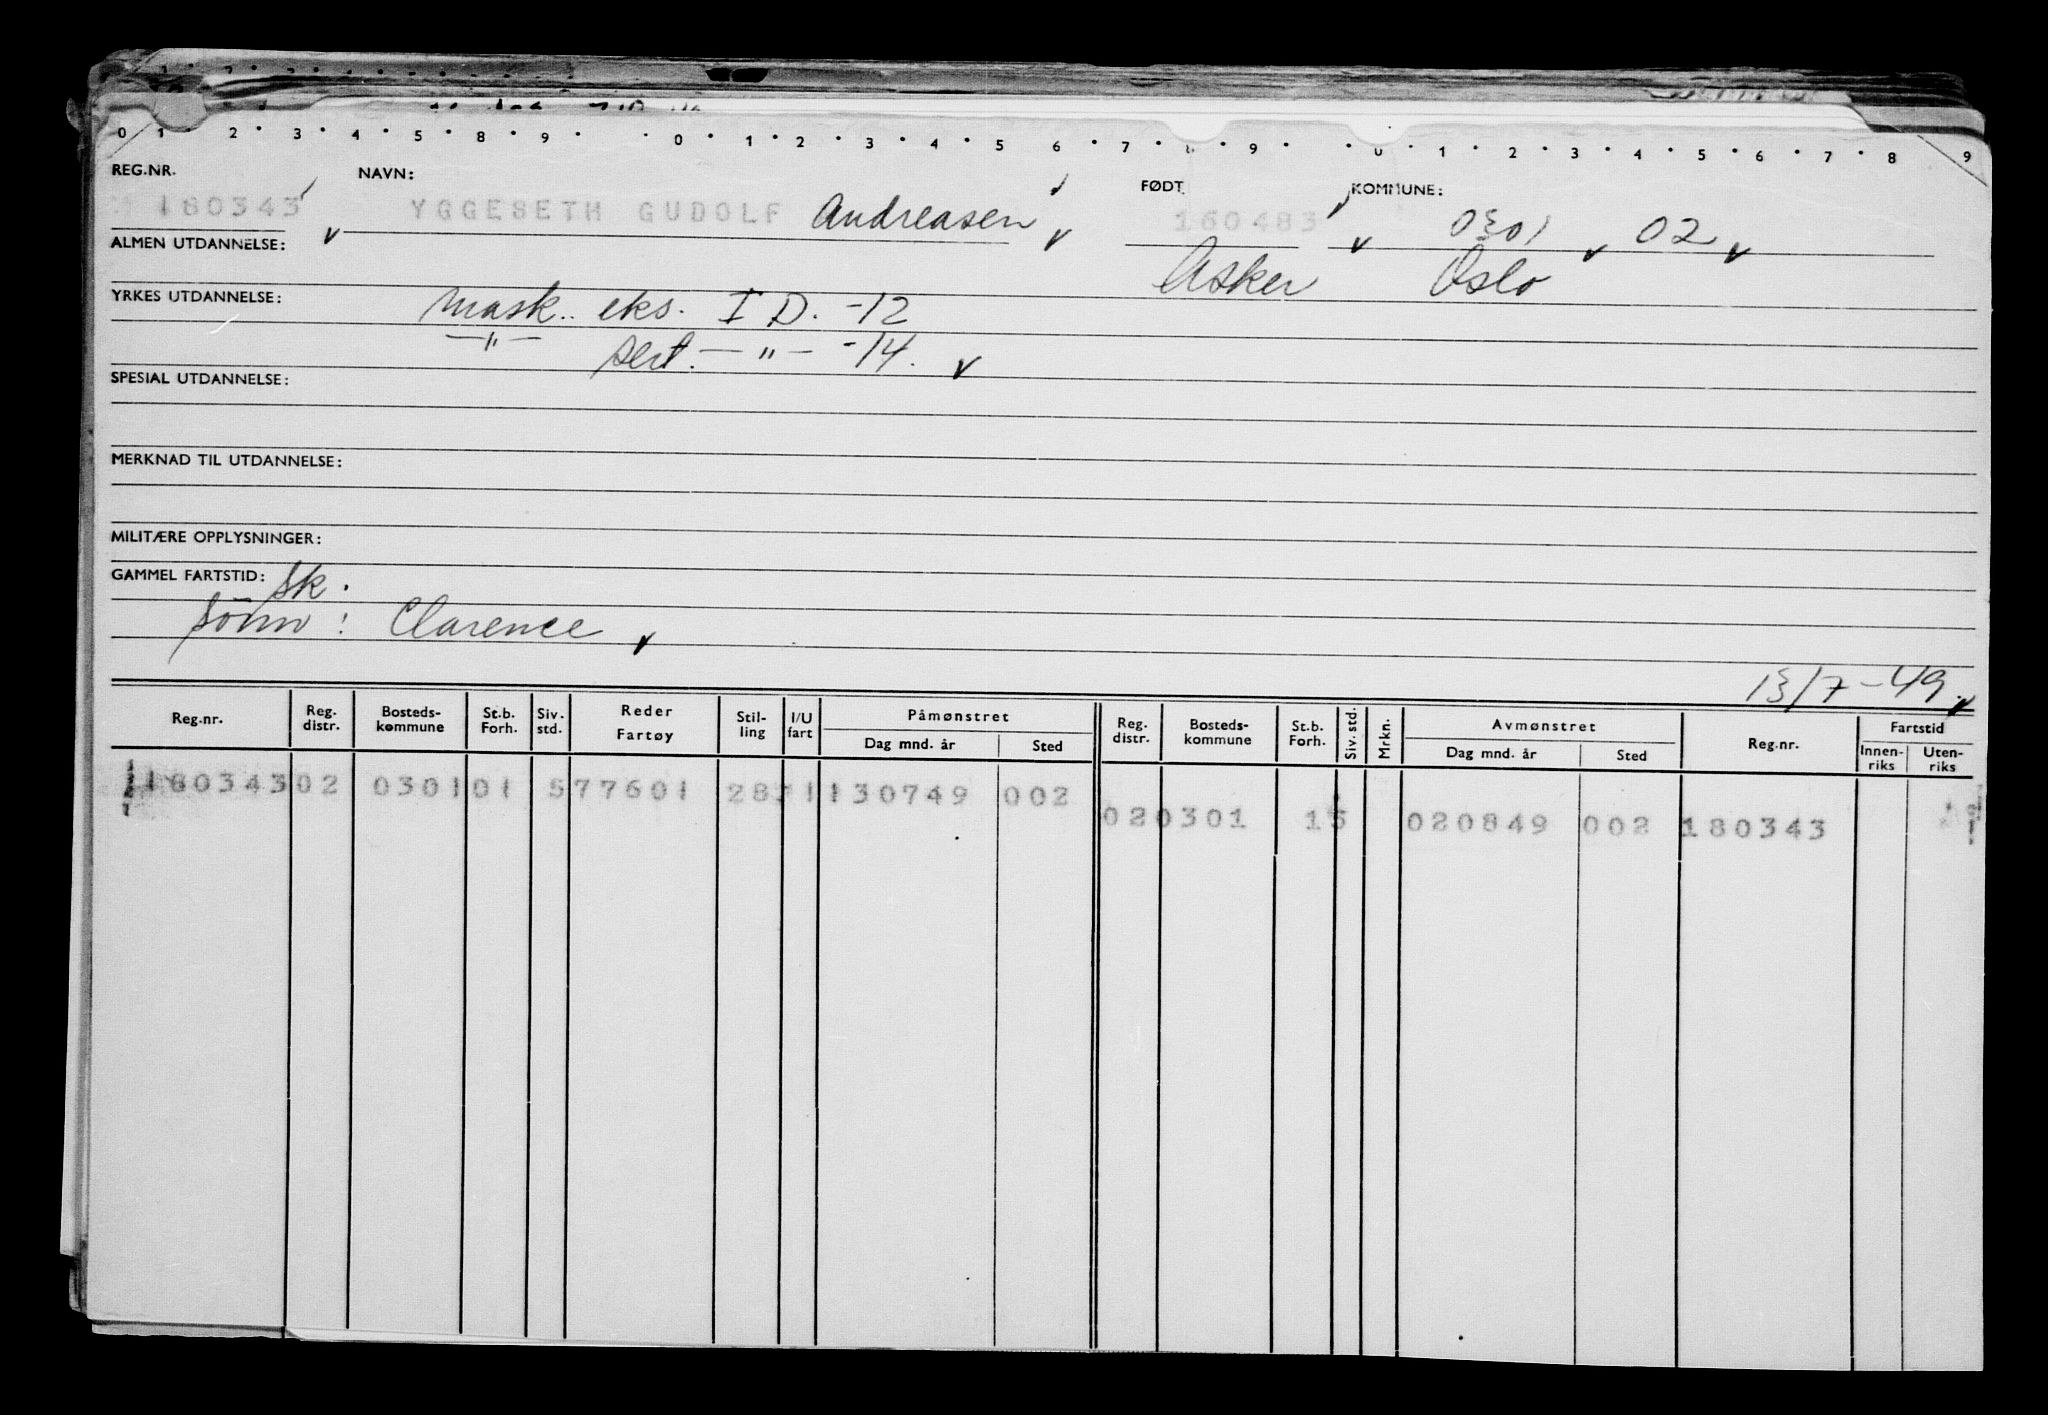 0 1 2 3 4 5 8 9 0 1 2 3 4 5 6 7 8 9 0 1 2 3 4 5 6 7 8 9
REG.NR. NAVN: FØDT KOMMUNE:
180343 YGGESETH GUDOLF Andreasen 160483 0301 02
ALMEN UTDANNELSE: Asker Oslo
YRKES UTDANNELSE: Mask. eks. I D. -12
—"— sert. —"— -14.
SPESIAL UTDANNELSE:
MERKNAD TIL UTDANNELSE:
MILITÆRE OPPLYSNINGER:
GAMMEL FARTSTID: Sk.
Sönn: Clarence
13/7-49.
Reg.nr. Reg. distr. Bosteds-kommune St.b. Forh. Siv. std. Reder Fartøy Stil-ling I/U fart Påmønstret Dag mnd. år Sted Reg. distr. Bosteds-kommune St.b. Forh. Siv. std. Mrkn. Avmønstret Dag mnd. år Sted Reg.nr. Fartstid Innen-riks Uten-riks
180343 02 0301 01 577601 28 1 130749 002
02 0301 15 020849 002 180343